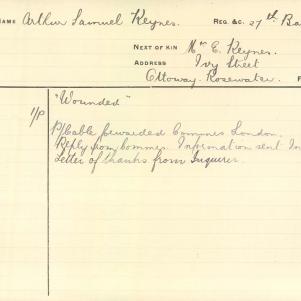 NAME Arthur Samuel Keynes. REG. &C. 27th Ba
NEXT OF KIN Mr E. Keynes.
ADDRESS Ivy Street
Ottoway. Rosewater. F
"Wounded"
1/P P/Cable forwarded Commrs London.
Reply from Commrs. Information sent In
Letter of thanks from Inquirer.